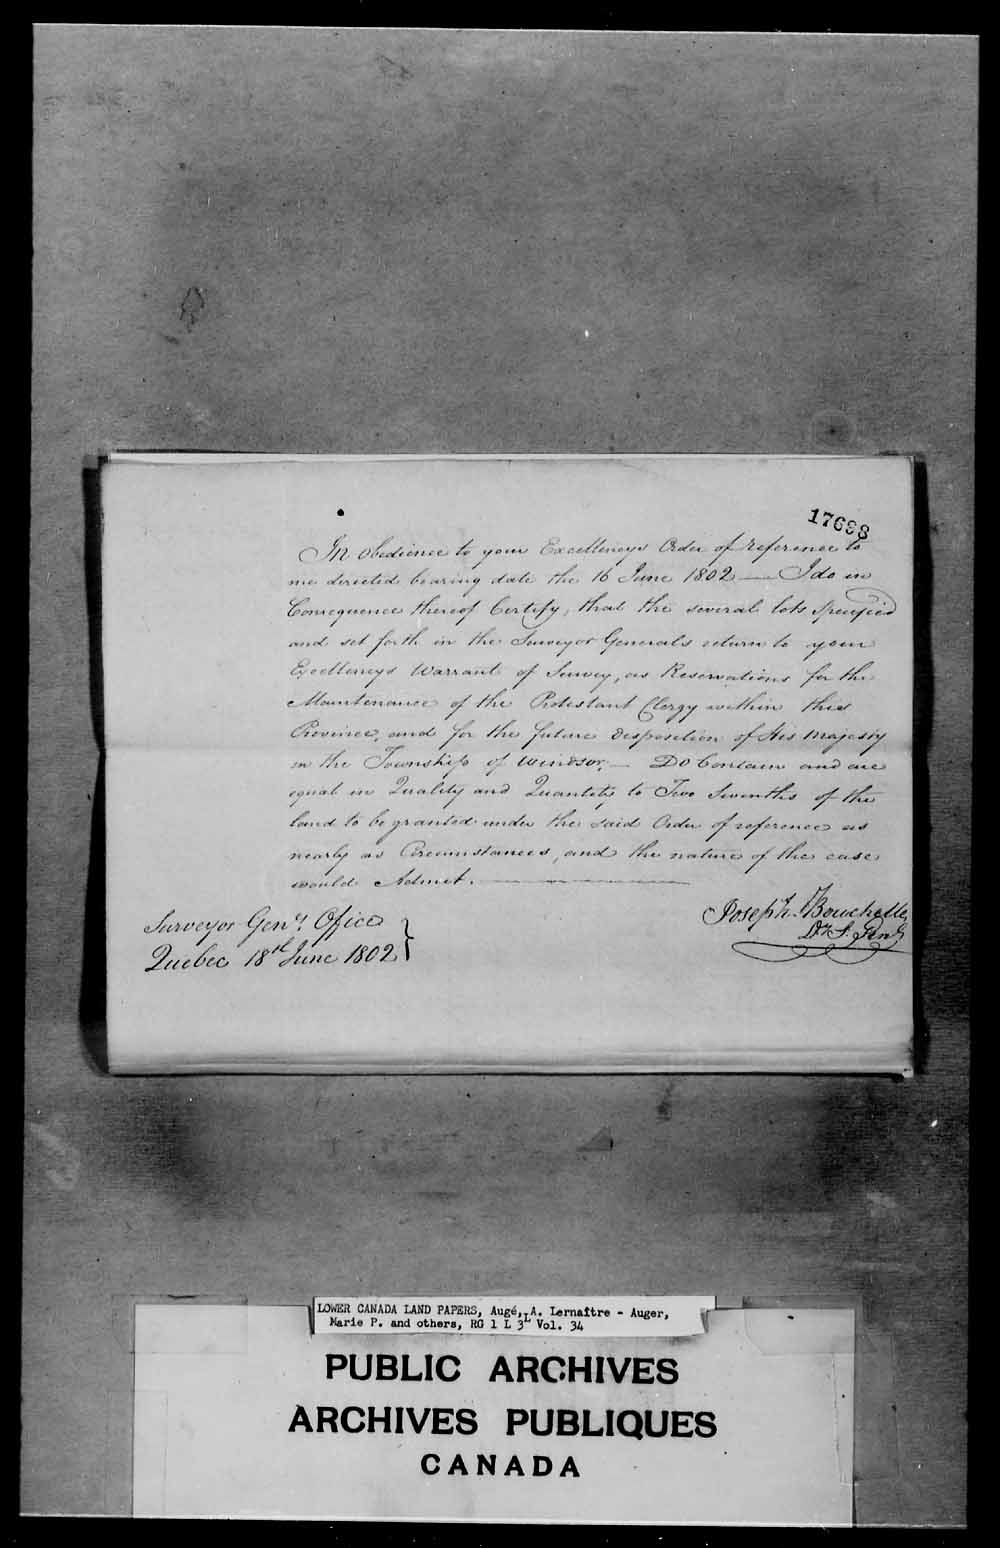 17698
In obedience to your Excellencys Order of reference to
me directed bearing date the 16 June 1802 — I do in
Consequence thereof Certify, that the several lots Specified
and set forth in the Surveyor Generals return to your
Excellencys Warrant of Survey, as Reservations for the
Maintenance of the Protestant Clergy within this
Province, and for the future Disposition of His Majesty
in the Township of Windsor, — Do Contain and are
equal in Quality and Quantity to Two Sevenths of the
land to be granted under the said Order of reference as
nearly as Circumstances, and the nature of the case
would Admit. —
Joseph Bouchette
Dy S. Genl
Surveyor Genl Office
Quebec 18th June 1802
LOWER CANADA LAND PAPERS, Augé, A. Lernaître - Auger,
Marie P. and others, RG 1 L 3L Vol. 34
PUBLIC ARCHIVES
ARCHIVES PUBLIQUES
CANADA